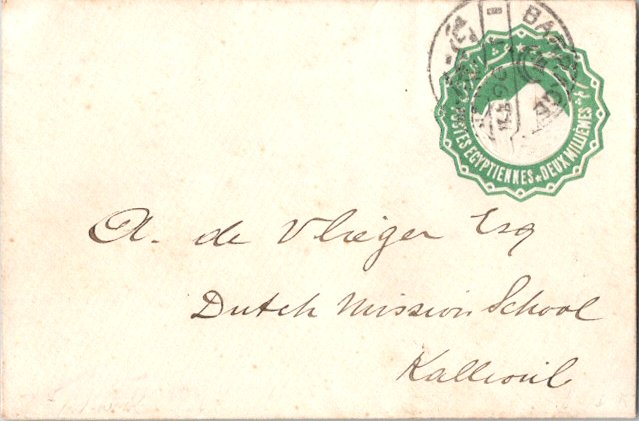 POSTES EGYPTIENNES ★ DEUX MILLIEMES
A. de Vlieger Esq
Dutch Mission School
Kallioub